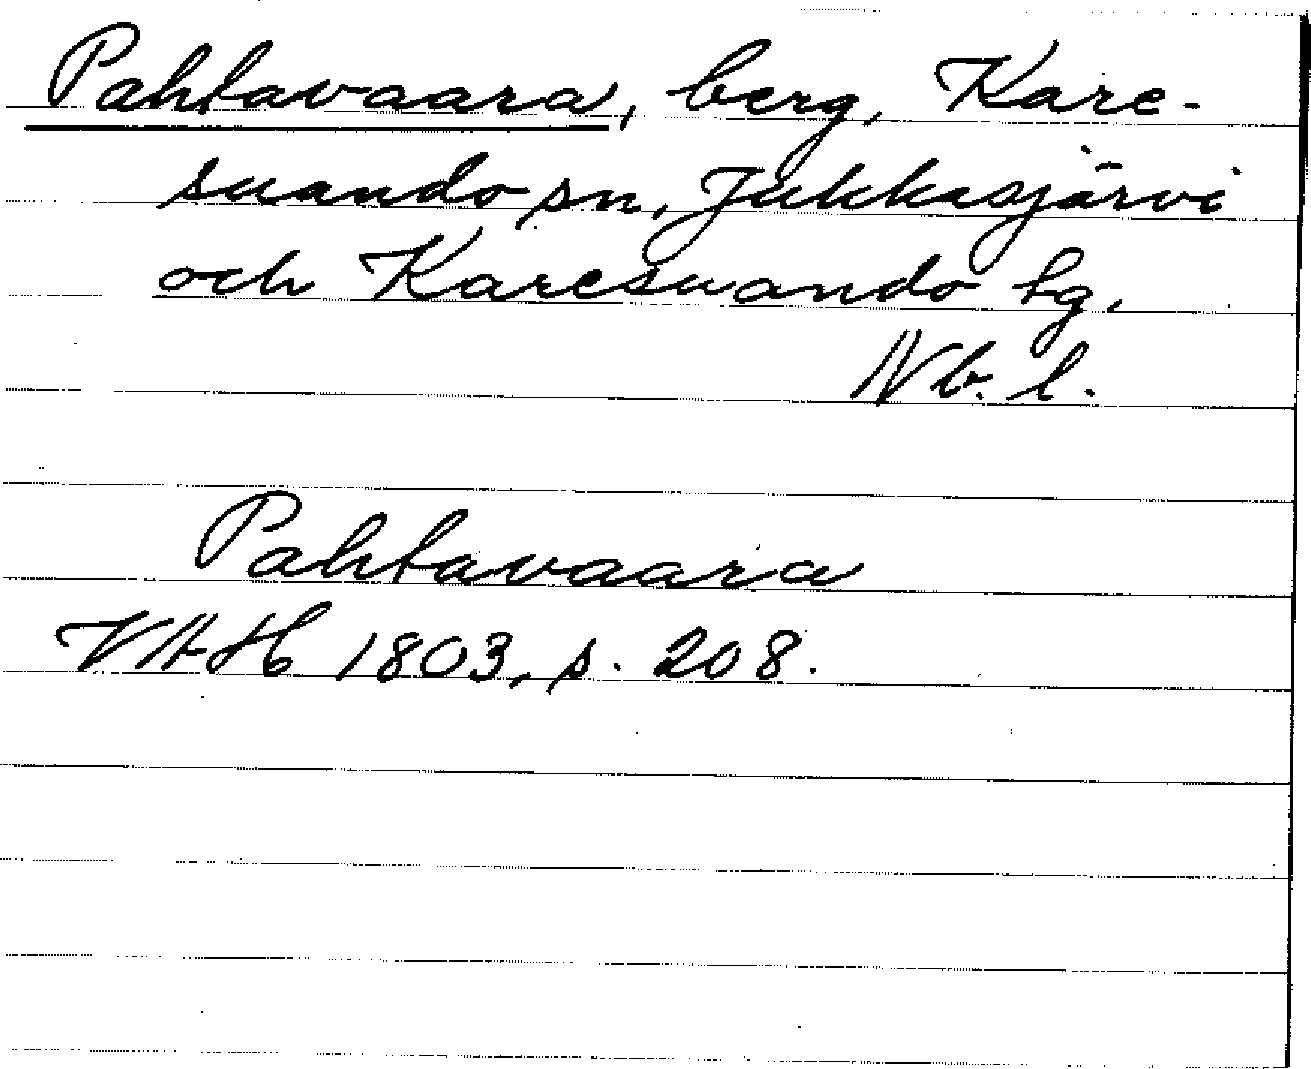 Pahtavaara, berg, Kare-
suando sn, Jukkasjärvi
och Karesuando tg,
Nb. l.
Pahtavaara
VAH 1803, s. 208.